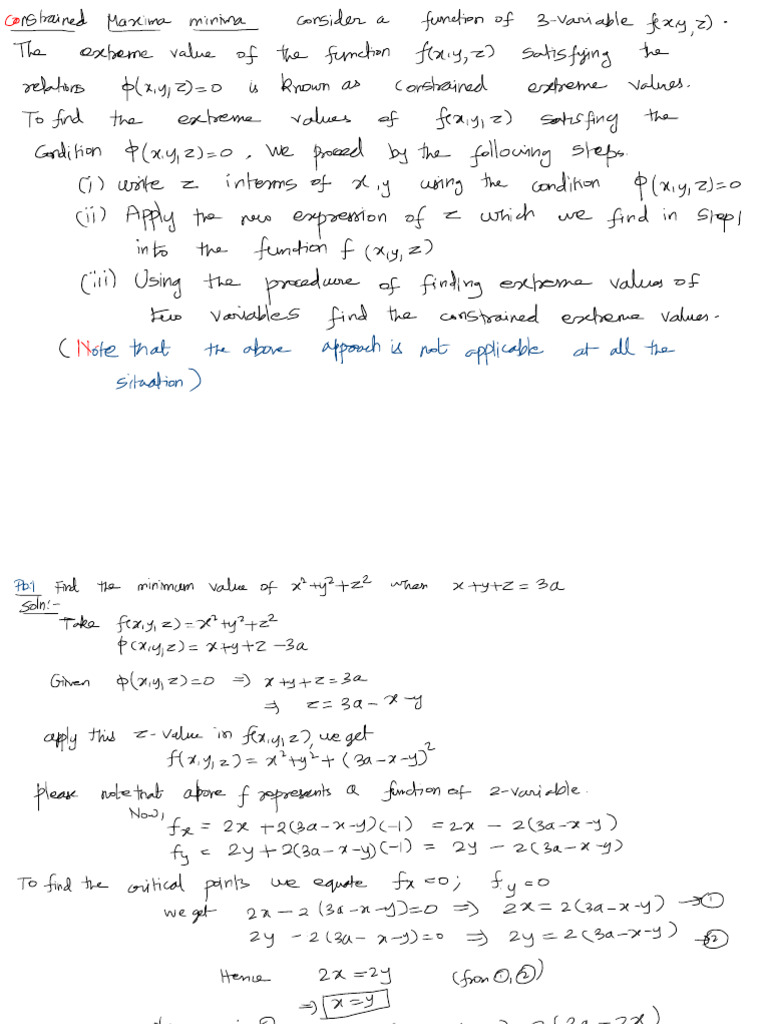 Constrained Maxima minima consider a function of 3-variable f(x,y,z).
The extreme value of the function f(x,y,z) satisfying the
relations ϕ(x,y,z)=0 is known as constrained extreme values.
To find the extreme values of f(x,y,z) satisfing the
Condition ϕ(x,y,z)=0, we proceed by the following steps.
(i) write z interms of x,y using the condition ϕ(x,y,z)=0
(ii) Apply the new expression of z which we find in step1
into the function f(x,y,z)
(iii) Using the procedure of finding extreme values of
two variables find the constrained extreme values.
(Note that the above approach is not applicable at all the
situation)
Pb:1 Find the minimum value of x²+y²+z² when x+y+z=3a
Soln:-
Take f(x,y,z)=x²+y²+z²
ϕ(x,y,z)=x+y+z-3a
Given ϕ(x,y,z)=0 ⇒ x+y+z=3a
⇒ z=3a-x-y
apply this z-value in f(x,y,z), we get
f(x,y,z)=x²+y²+(3a-x-y)²
please note that above f represents a function of 2-variable.
Now,
fx = 2x+2(3a-x-y)(-1) = 2x - 2(3a-x-y)
fy = 2y+2(3a-x-y)(-1) = 2y - 2(3a-x-y)
To find the critical points we equate fx=0; fy=0
we get 2x-2(3a-x-y)=0 ⇒ 2x=2(3a-x-y) →①
2y-2(3a-x-y)=0 ⇒ 2y=2(3a-x-y) →②
Hence 2x=2y (from ①,②)
⇒ x=y